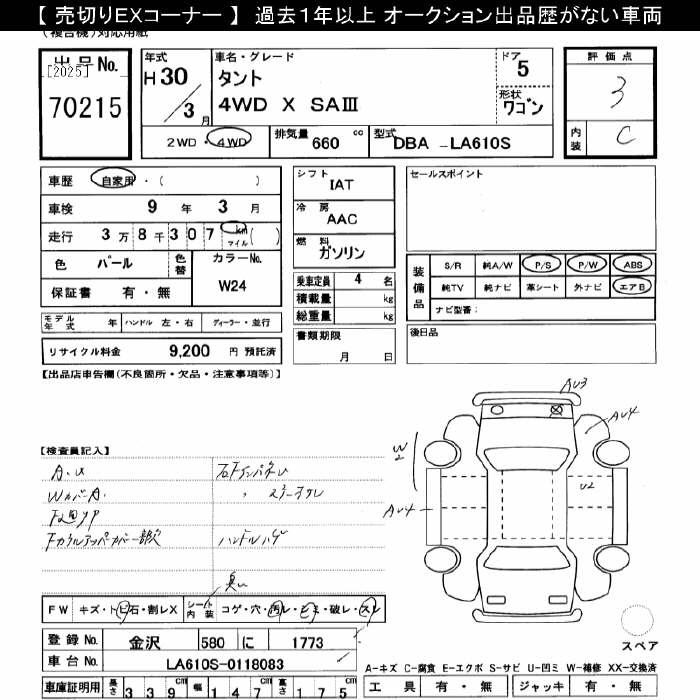 【 売切りEXコーナー 】 過去１年以上 オークション出品歴がない車両
(複合機)対応用紙
出品No.
[2025]
70215
年式
H30
3月
車名・グレード
タント
4WD X SAⅢ
ドア
5
形状
ワゴン
評価点
3
内装
C
2WD・4WD
排気量 660 cc
型式 DBA -LA610S
車歴 自家用・( )
車検 9 年 3 月
走行 3万8千307 km マイル ( )
色 パール 色替
カラーNo.
W24
保証書 有・無
シフト
IAT
冷房
AAC
燃料
ガソリン
乗車定員 4 名
積載量 kg
総重量 kg
書類期限
月 日
セールスポイント
装備品
S/R 純A/W P/S P/W ABS
純TV 純ナビ 革シート 外ナビ エアB
ナビ型番:
後日品
モデル年式 年 ハンドル 左・右 ディーラー・並行
リサイクル料金 9,200 円 預託済
【出品店申告欄(不良箇所・欠品・注意事項等)】
【検査員記入】
A.U
WカバーA.
ハンドルハゲ
AU3
AU4
W2
AU4
U2
臭い
FW キズ・トビ石・割レX シート内装 コゲ・穴・汚レ・シミ・破レ・スレ
登録No. 金沢 580 に 1773
車台No. LA610S-0118083
車庫証明用 長さ 339 cm 幅 147 cm 高さ 175 cm
スペア
A-キズ C-腐食 E-エクボ S-サビ U-凹ミ W-補修 XX-交換済
工具 有・無 ジャッキ 有・無